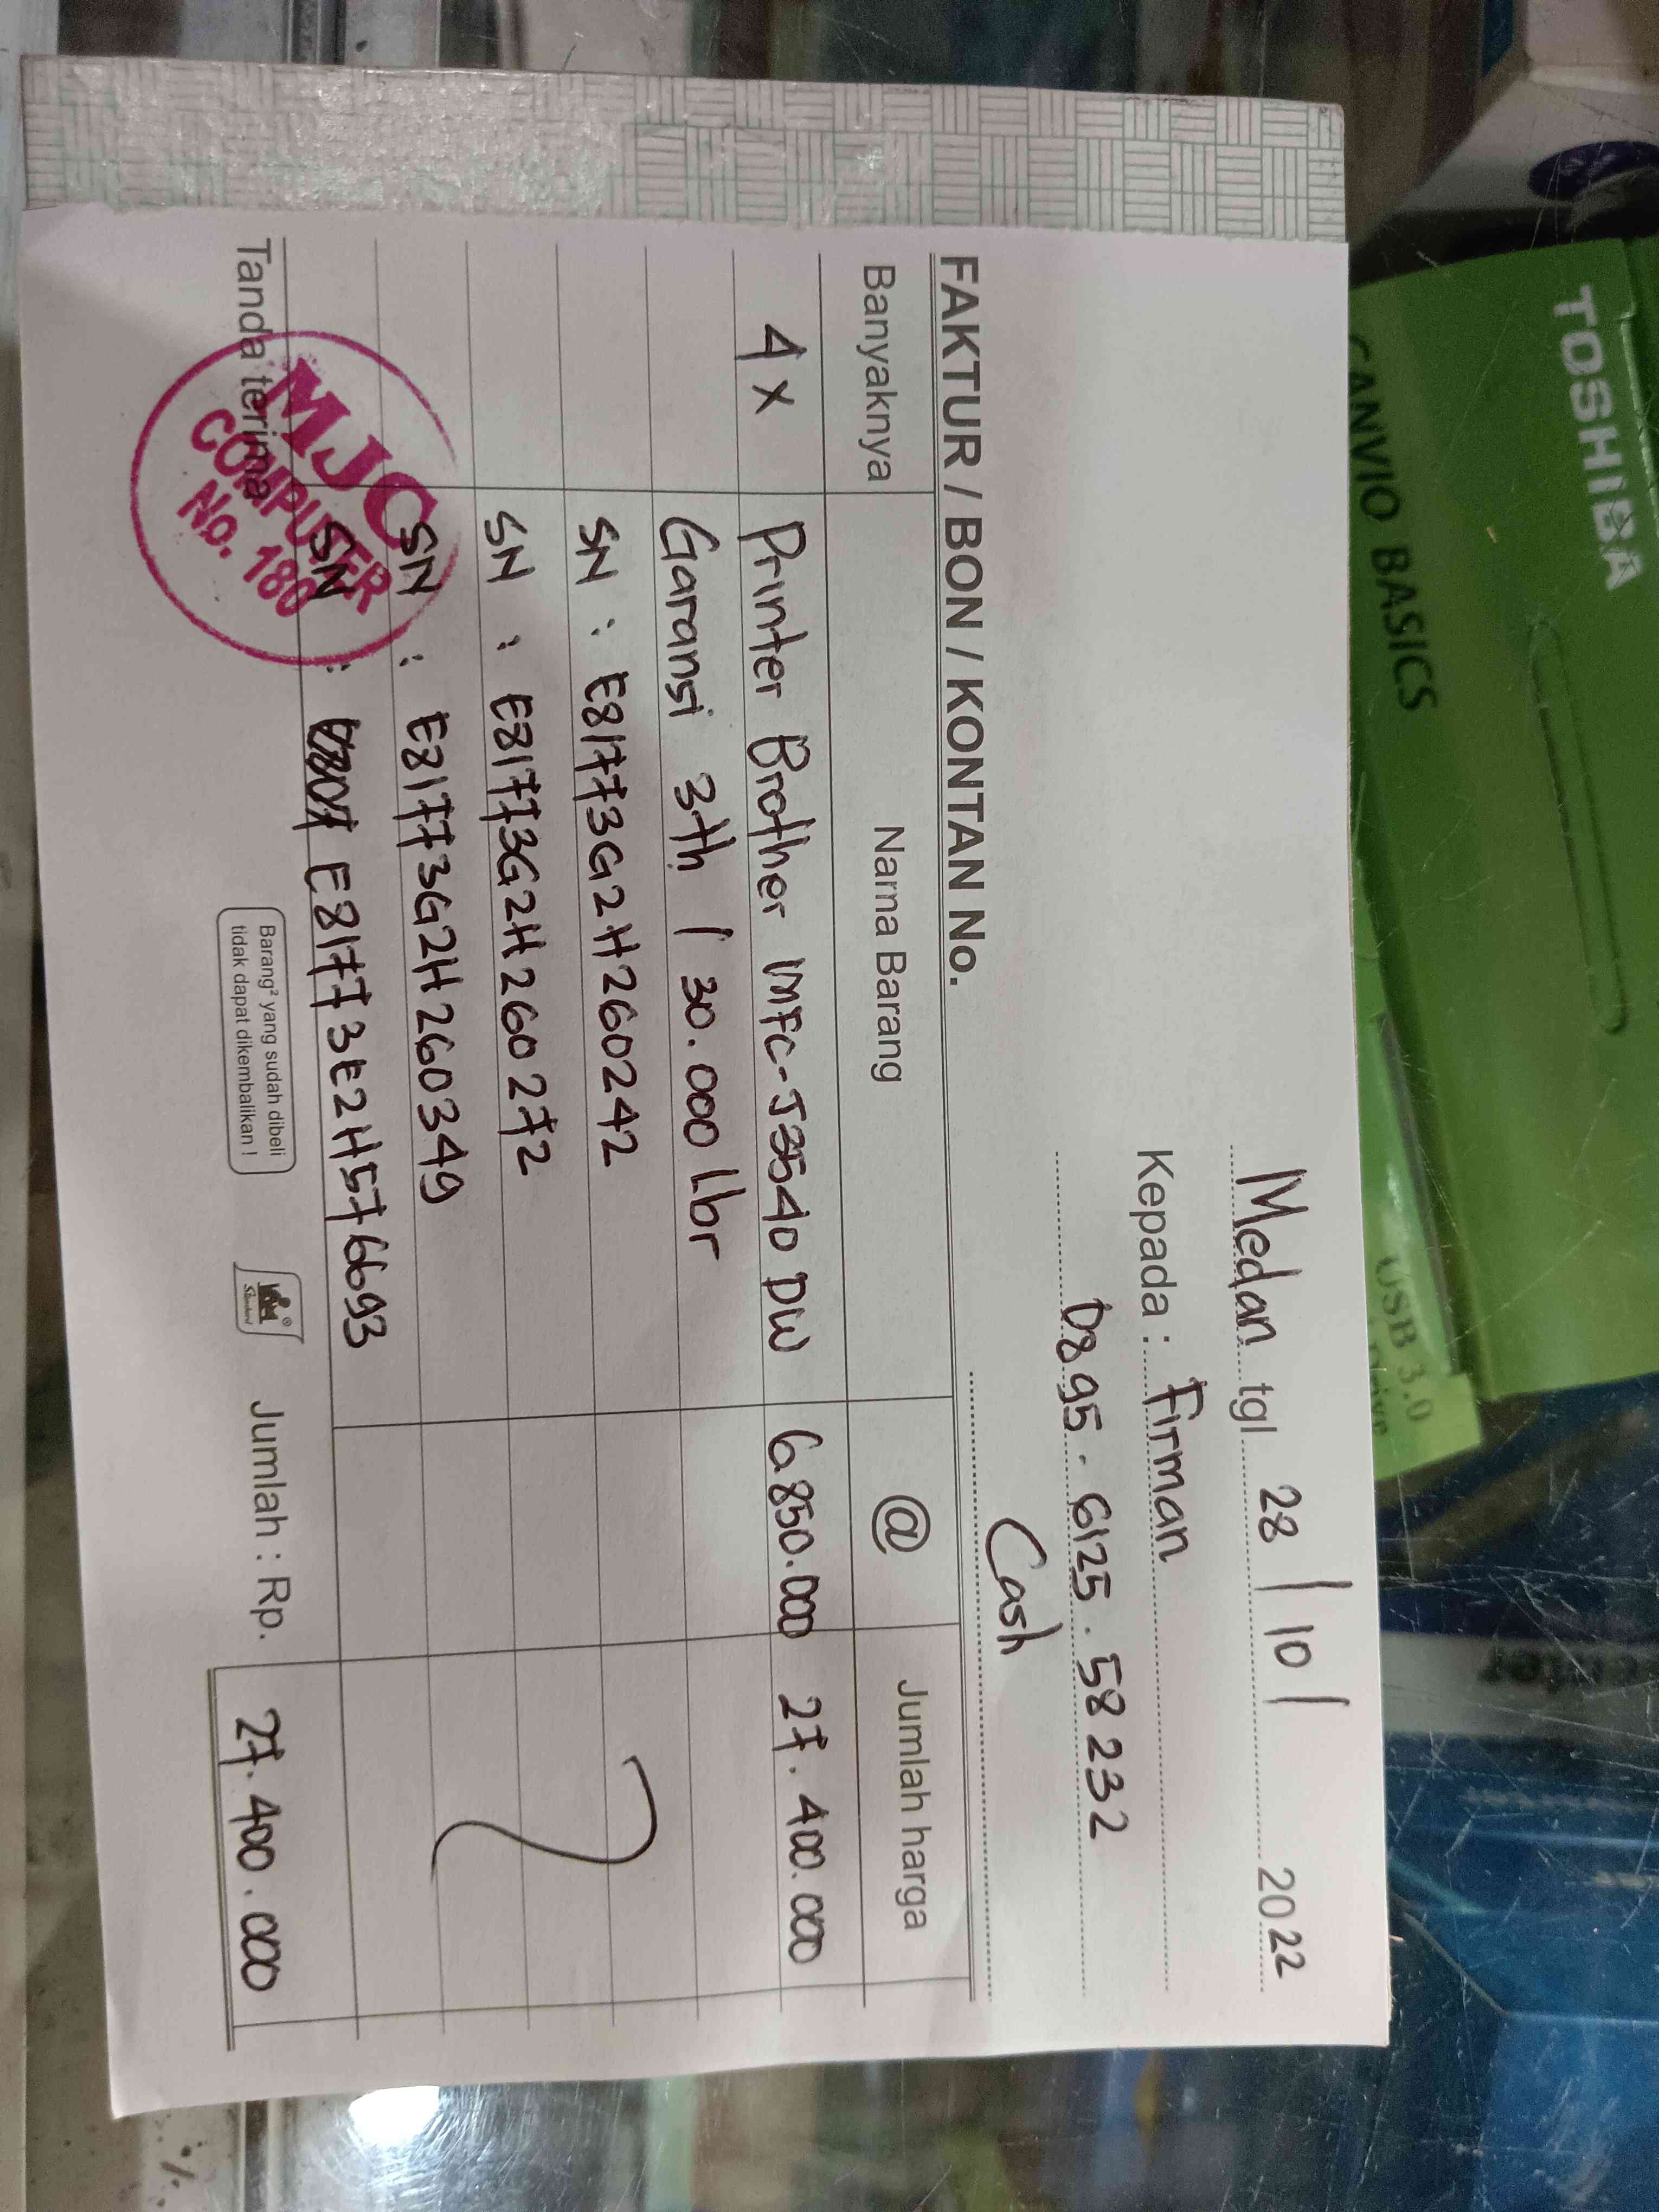 Medan tgl 28 / 10 / 2022
Kepada : Firman
0895 . 6125 . 58 232
Cash
FAKTUR / BON / KONTAN No.
Banyaknya Nama Barang @ Jumlah harga
4 x Printer Brother MFC-J3540 DW 6.850.000 27.400.000
Garansi 3th / 30.000 lbr
SN : E81773G2H260242
SN : E81773G2H260272
SN : E81773G2H260349
SN : E81773E2H576693
Tanda terima
MJC
COMPUTER
No. 180
Barang² yang sudah dibeli
tidak dapat dikembalikan !
Jumlah : Rp. 27.400.000
TOSHIBA
CANVIO BASICS
USB 3.0